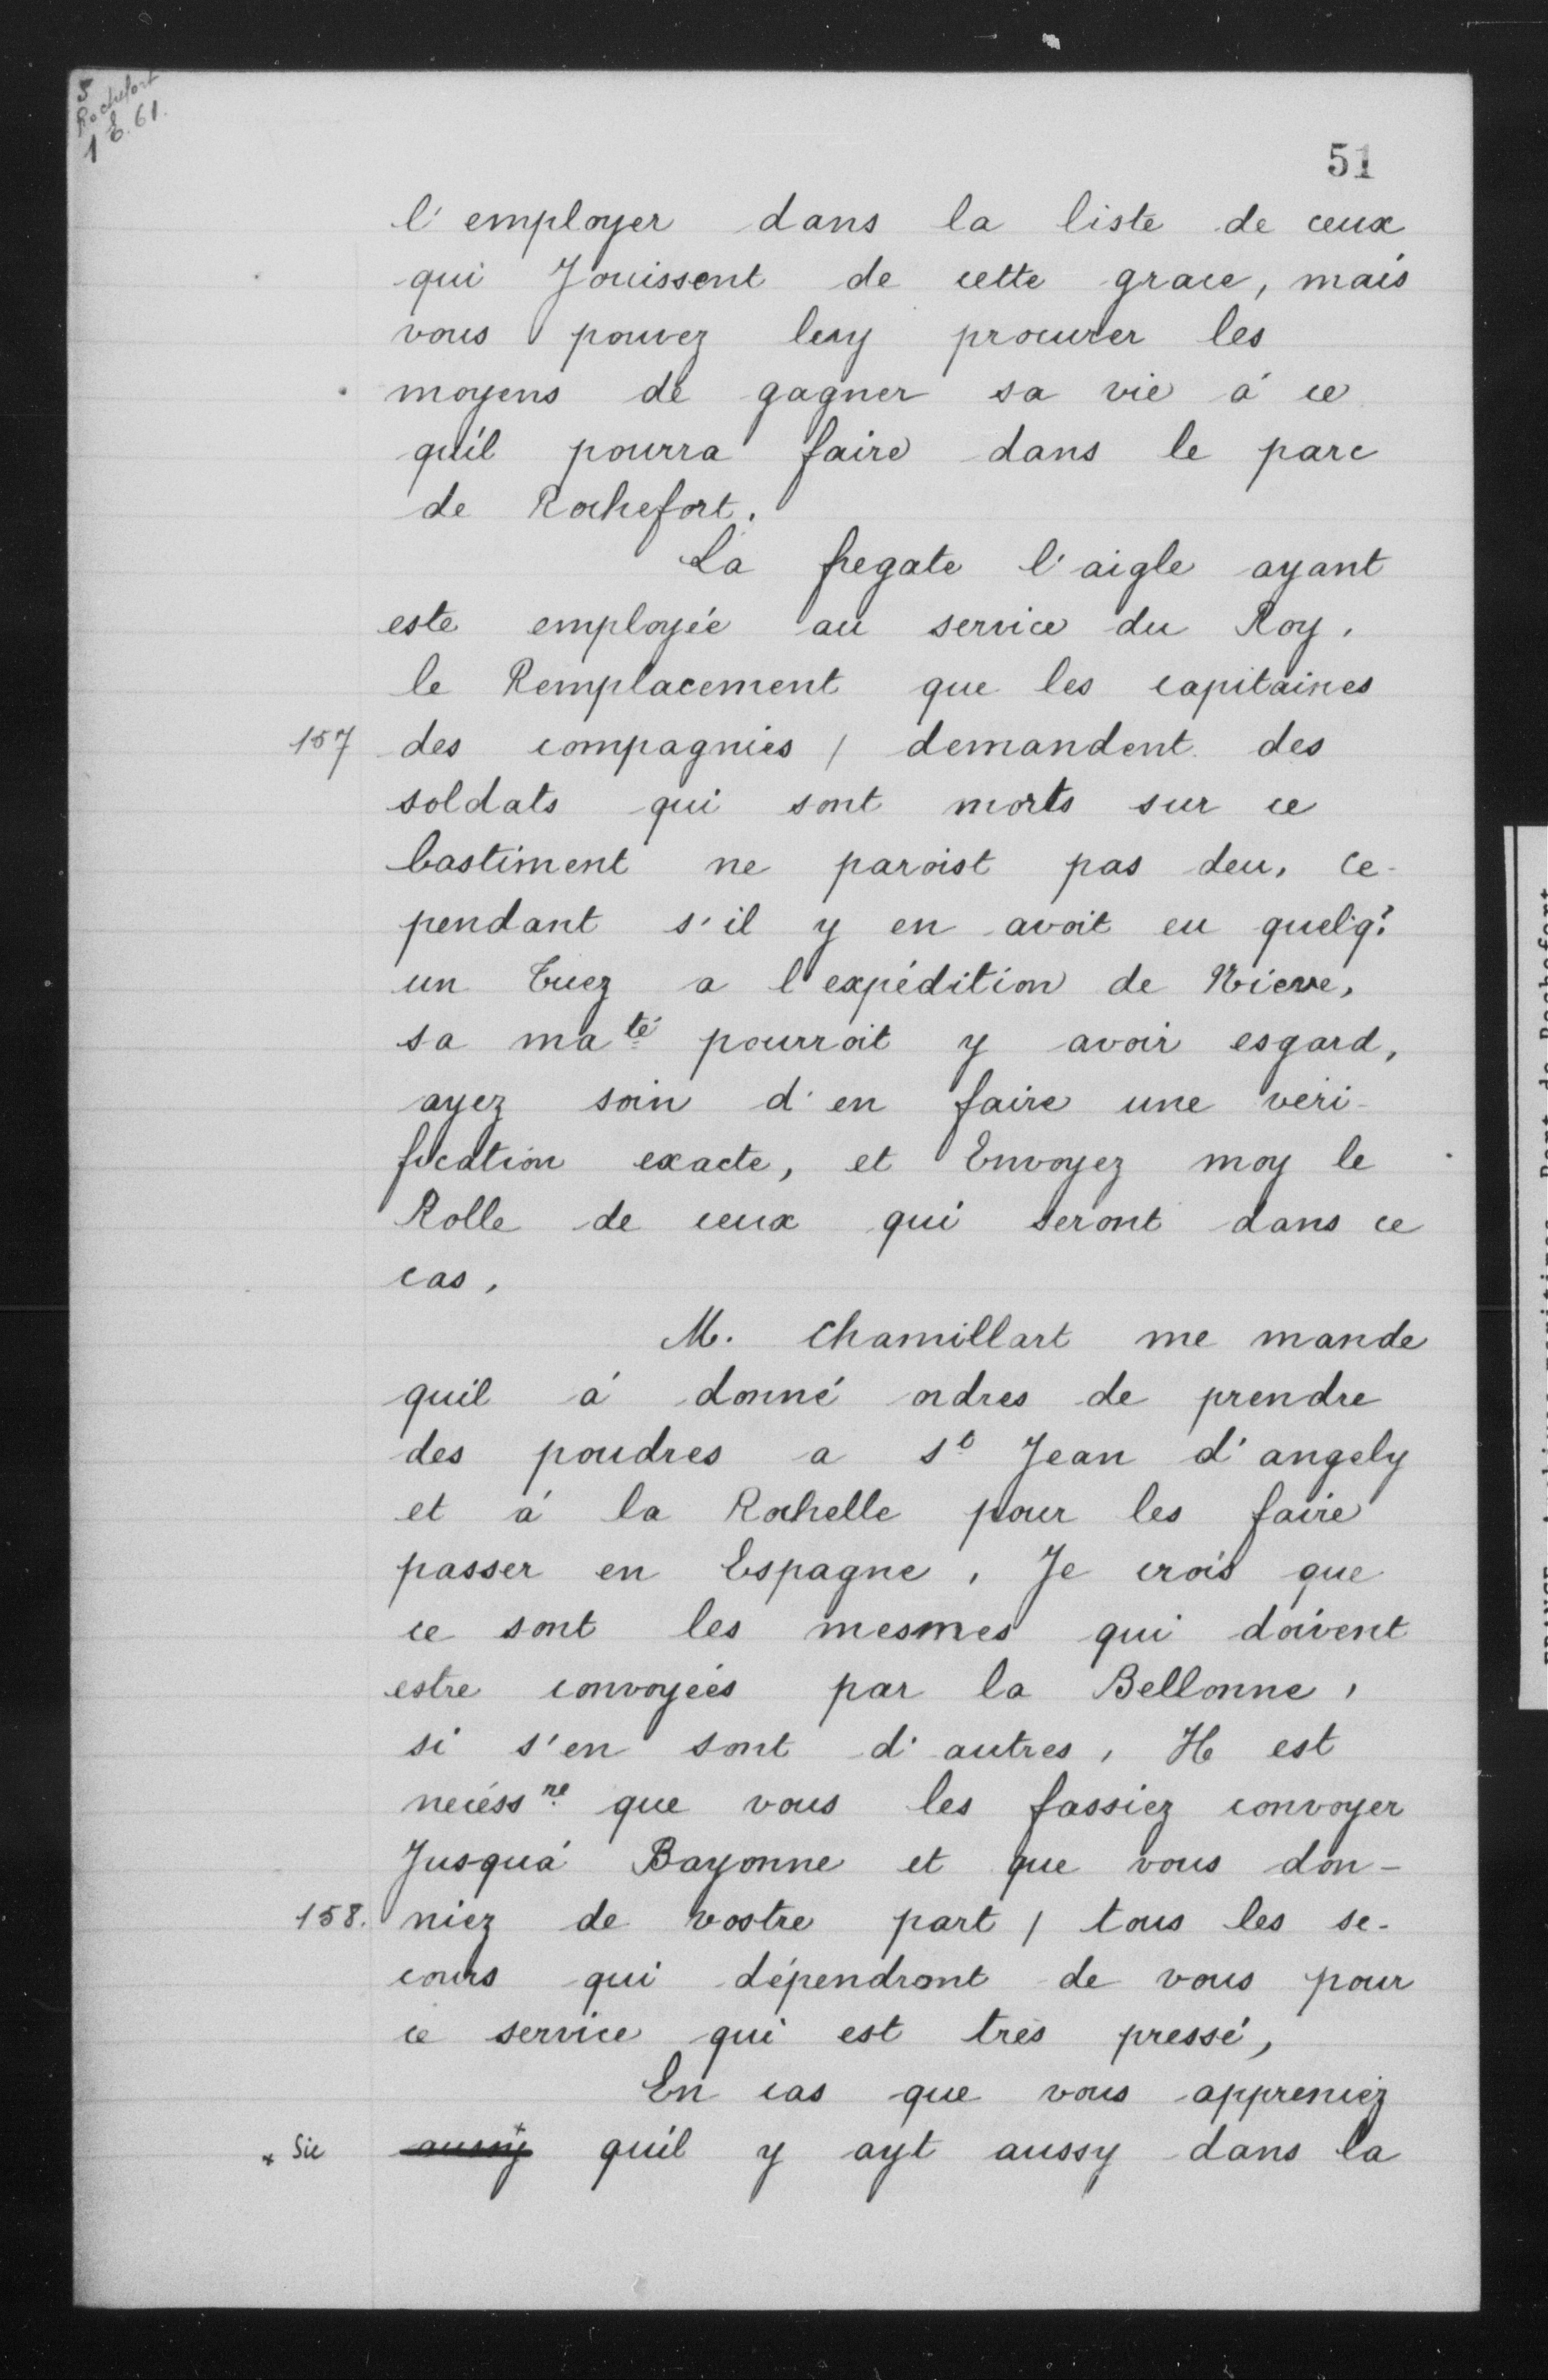 5
Rochefort
1 E. 61.
51
l'employer dans la liste de ceux
qui Jouissent de cette grace, mais
vous pouvez luy procurer les
moyens de gagner sa vie á ce
quil pourra faire dans le parc
de Rochefort.
La fregate l'aigle ayant
este employée au service du Roy,
le Remplacement que les capitaines
157 des compagnies / demandent des
soldats qui sont morts sur ce
bastiment ne paroist pas deu, ce-
pendant s'il y en avoit eu quelq?
un tuez a l'expédition de Nieve,
sa ma té pourroit y avoir esgard,
ayez soin d'en faire une veri-
fication exacte, et Envoyez moy le
Rolle de ceux qui seront dans ce
cas,
M. Chamillart me mande
quil á donné ordres de prendre
des poudres a St Jean d'angely
et á la Rochelle pour les faire
passer en Espagne, Je crois que
ce sont les mesmes qui doivent
estre convoyées par la Bellonne,
si s'en sont d'autres, Il est
necéss re que vous les fassiez convoyer
Jusquá Bayonne et que vous don-
158. niez de vostre part / tous les se-
cours qui dépendront de vous pour
ce service qui est très pressé,
En cas que vous appreniez
* Sic aussy + quil y ayt aussy dans la